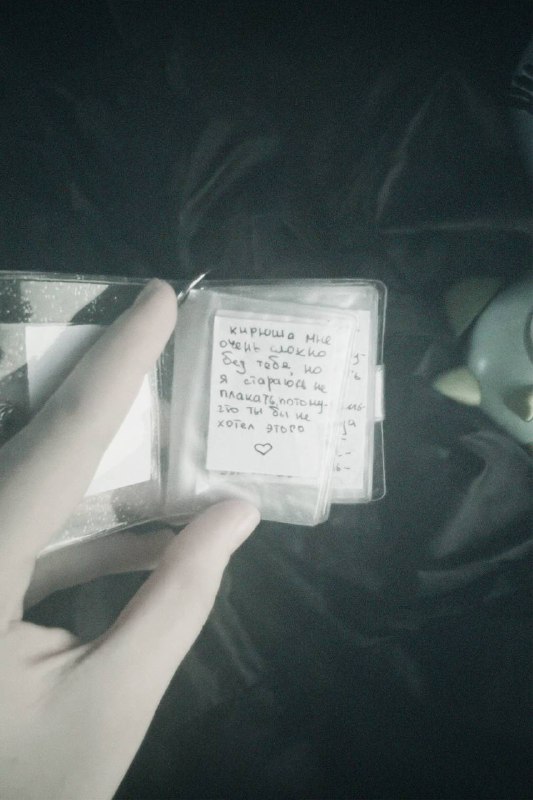 кирюша мне
очень сложно
без тебя, но
я стараюсь не
плакать, потому-
что ты бы не
хотел этого